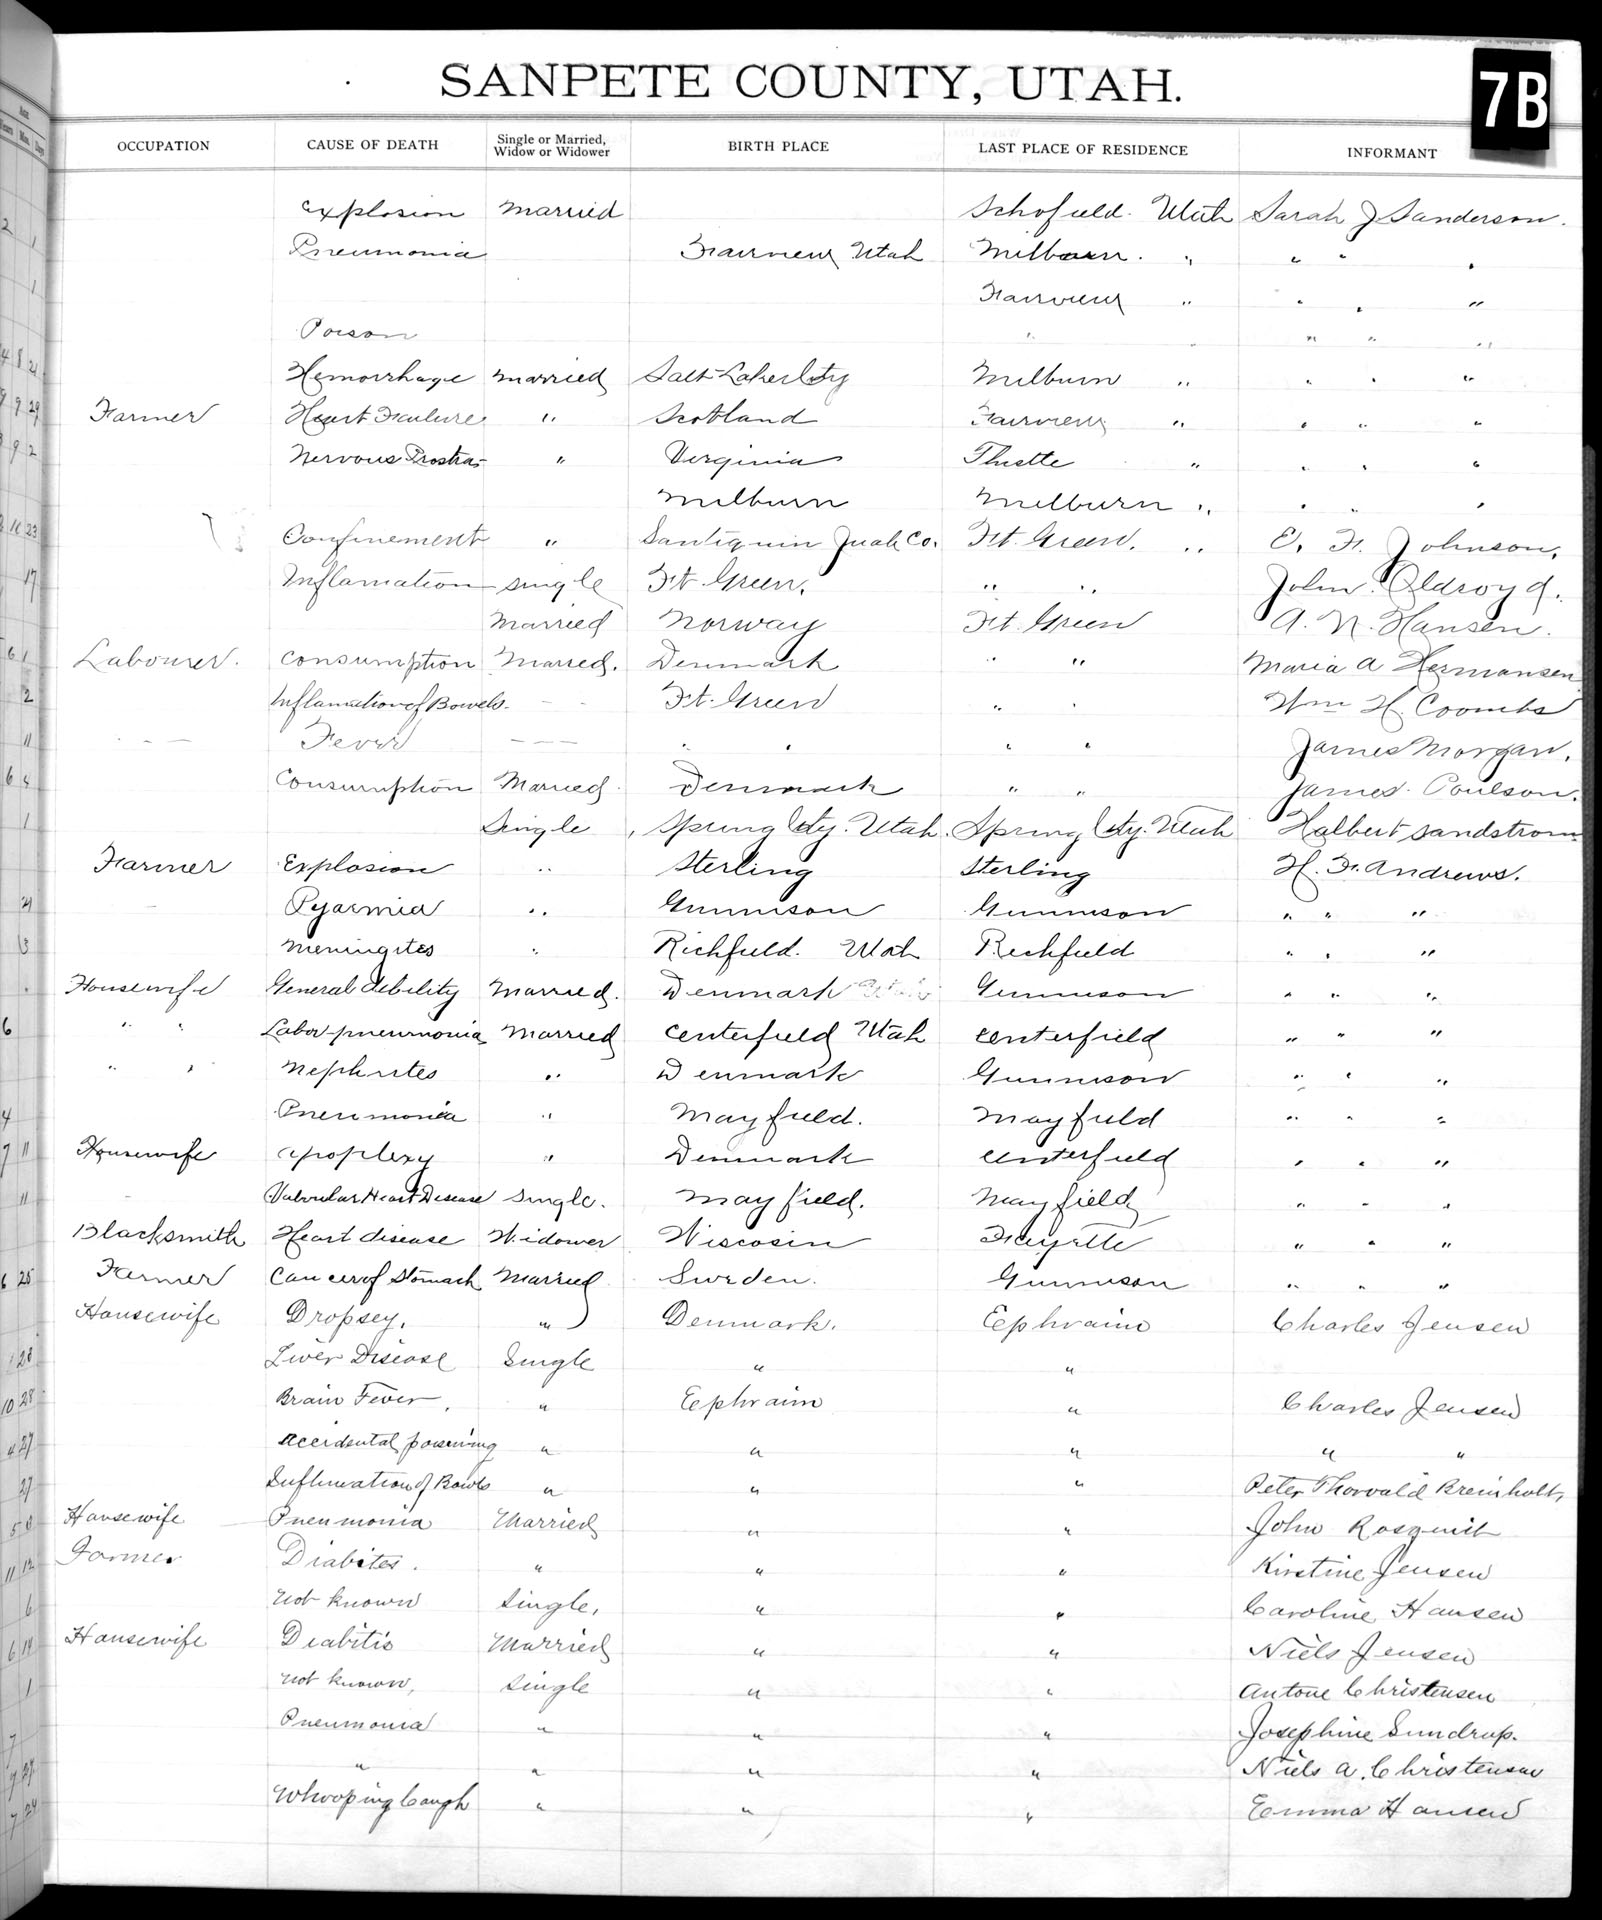 SANPETE COUNTY, UTAH.
7B
OCCUPATION CAUSE OF DEATH Single or Married, Widow or Widower BIRTH PLACE LAST PLACE OF RESIDENCE INFORMANT
Explosion Married Schofield. Utah Sarah J Sanderson.
Pneumonia Fairview Utah Milburn. " " " "
Fairview " " " "
Poison " " " " "
Hemorrhage Married Salt Lake City Milburn " " " "
Farmer Heart Failure " Scotland Fairview " " " "
Nervous Prostra- " Virginia Thistle " " " "
Milburn Milburn " " " "
Confinement " Santiquin Juab Co. Ft. Green. " E. F. Johnson.
Inflamation single Ft Green. " " John Oldroyd.
Married Norway Ft. Green A. N. Hansen.
Labourer. Consumption Married. Denmark " " Maria A Hermansen
Inflamation of Bowels. - - Ft. Green " " Wm H. Coombs
- - - Fever - - - " " " " James Morgan.
Consumption Married. Denmark " " James Poulson.
Single Spring City. Utah. Spring City. Utah Halbert Sandstrom
Farmer Explosion " Sterling Sterling H. F. Andrews.
Pyaemia " Gunnison Gunnison " " "
Meningites " Richfield. Utah Richfield " " "
Housewife General debility Married. Denmark Utah Gunnison " " "
" " Labor-pneumonia Married Centerfield Utah Centerfield " " "
" " Nephrites " Denmark Gunnison " " "
Pneumonia " Mayfield. Mayfield " " "
Housewife Apoplexy " Denmark Centerfield " " "
Valvular Heart Disease Single. Mayfield. Mayfield " " "
Blacksmith Heart disease Widower Wiscosin Fayette " " "
Farmer Cancer of Stomach Married Sweden. Gunnison " " "
Housewife Dropsey. " Denmark. Ephraim Charles Jensen
Liver Disease Single " "
Brain Fever. " Ephraim " Charles Jensen
Accidental poisening " " " " "
Inflamation of Bowls " " " Peter Thorvald Breinholt,
Housewife Pneumonia Married " " John Rosquist
Farmer Diabites. " " " Kirstine Jensen
Not known Single, " " Caroline Hansen
Housewife Diabitis Married " " Niels Jensen
Not known, Single " " Antone Christensen
Pneumonia " " " Josephine Sundrup.
" " " " Niels A. Christensen
Whooping Cough " " " Emma Hansen